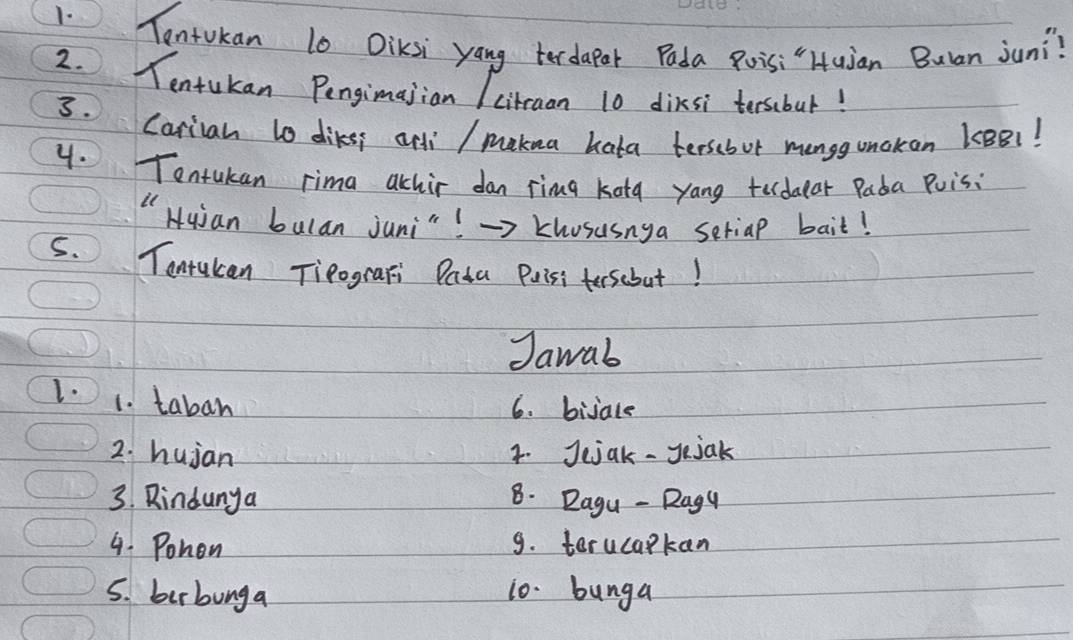 Date :
1. Tentukan 10 Diksi yang terdapat Pada Puisi "Hujan Bulan juni"!
2. Tentukan Pengimajian / citraan 10 diksi tersebut !
3. Carilah 10 diksi arti / makna kata tersebut menggunakan KBBI !
4. Tentukan rima akhir dan rima kata yang terdapat Pada Puisi
"Hujan bulan juni" ! → khususnya setiap bait !
5. Tentukan Tipografi Pada Puisi tersebut !
Jawab
1. 1. tabah 6. bijak
2. hujan 7. Jejak - Jejak
3. Rindunya 8. Ragu - Ragu
4. Pohon 9. terucapkan
5. berbunga 10. bunga